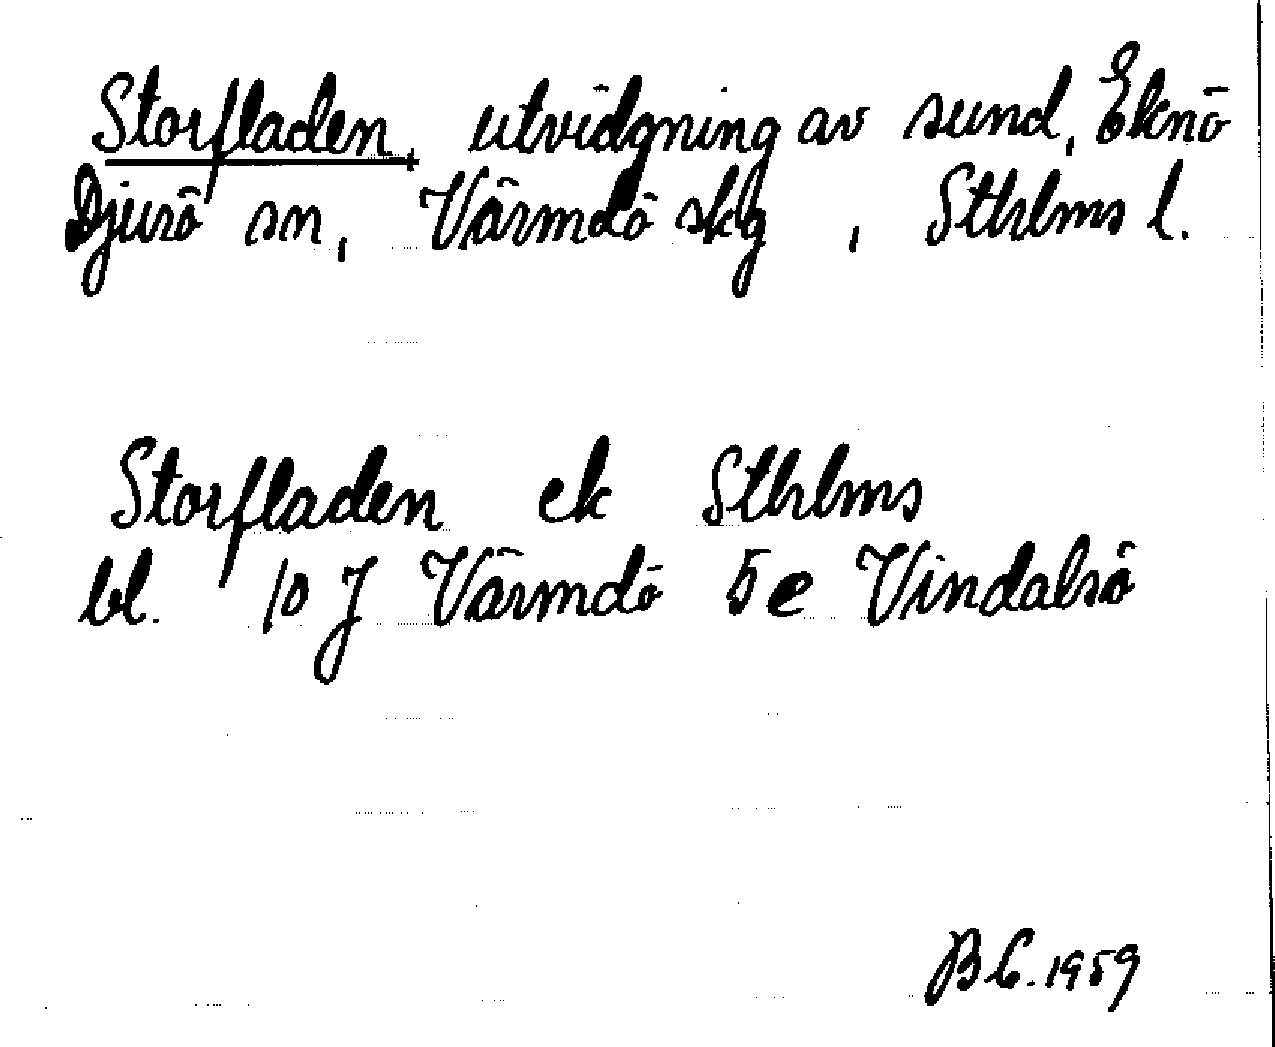 Storfladen, utvidgning av sund, Eknö
Djurö sn, Värmdö skg, Sthlms l.
Storfladen ek Sthlms
bl. 10 J Värmdö 5e Vindalsö
B C. 1959